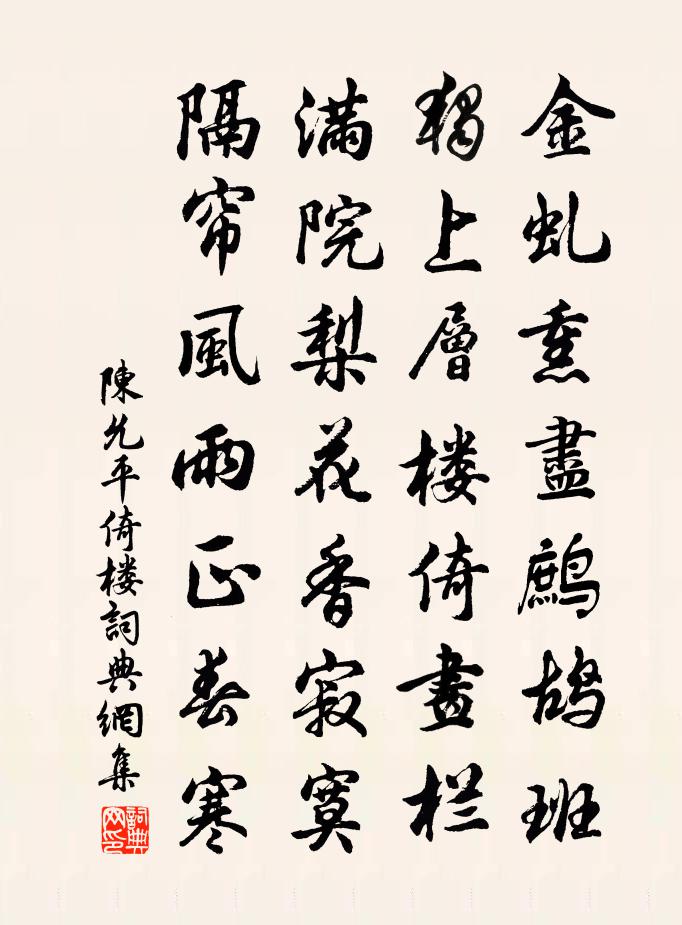 金虬熏盡鷓鴣班
獨上層樓倚畫栏
滿院梨花香寂寞
隔帘風雨正春寒
陳允平倚楼詞典網集
詞典网印